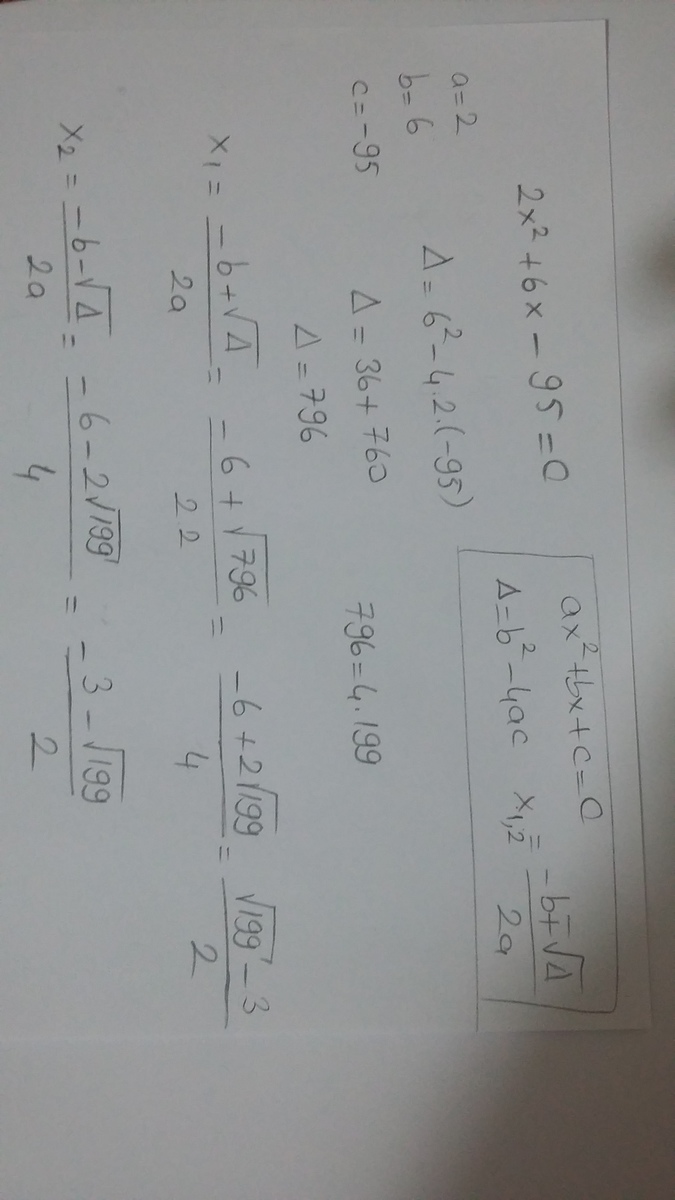 2x² + 6x - 95 = 0
ax² + bx + c = 0
Δ = b² - 4ac x₁,₂ = (-b ∓ √Δ) / 2a
a = 2
b = 6
c = -95
Δ = 6² - 4.2.(-95)
Δ = 36 + 760
Δ = 796
796 = 4.199
x₁ = (-b + √Δ) / 2a = (-6 + √796) / 2.2 = (-6 + 2√199) / 4 = (√199 - 3) / 2
x₂ = (-b - √Δ) / 2a = (-6 - 2√199) / 4 = (-3 - √199) / 2